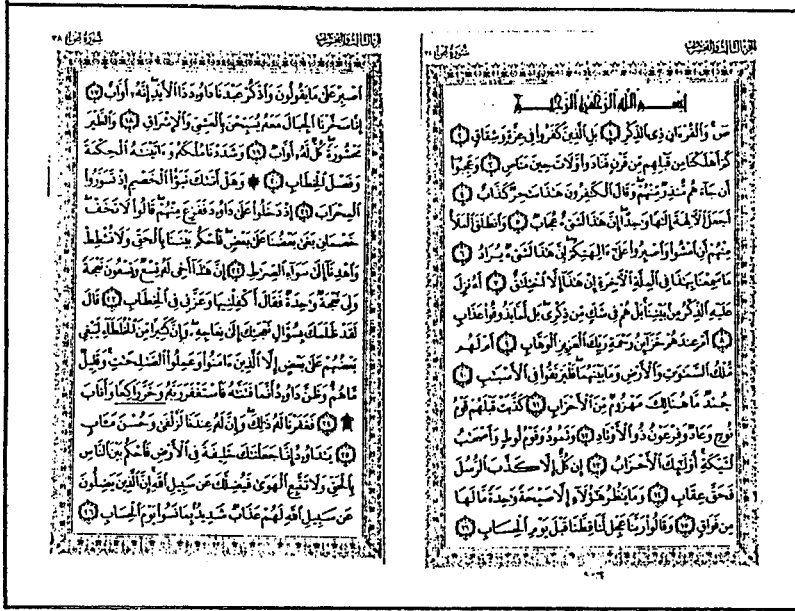 الجزء الثالث والعشرون
سورة ص ٣٨
بِسْمِ اللَّهِ الرَّحْمَٰنِ الرَّحِيمِ
صٓ وَالْقُرْءَانِ ذِى الذِّكْرِ ۝١ بَلِ الَّذِينَ كَفَرُوا فِى عِزَّةٍ وَشِقَاقٍ ۝٢
كَمْ أَهْلَكْنَا مِن قَبْلِهِم مِّن قَرْنٍ فَنَادَوا وَّلَاتَ حِينَ مَنَاصٍ ۝٣ وَعَجِبُوٓا
أَن جَآءَهُم مُّنذِرٌ مِّنْهُمْ وَقَالَ الْكَٰفِرُونَ هَٰذَا سَٰحِرٌ كَذَّابٌ ۝٤
أَجَعَلَ الْأَلِهَةَ إِلَٰهًا وَٰحِدًا إِنَّ هَٰذَا لَشَىْءٌ عُجَابٌ ۝٥ وَانطَلَقَ الْمَلَأُ
مِنْهُمْ أَنِ امْشُوا وَاصْبِرُوا عَلَىٰٓ ءَالِهَتِكُمْ إِنَّ هَٰذَا لَشَىْءٌ يُرَادُ ۝٦
مَا سَمِعْنَا بِهَٰذَا فِى الْمِلَّةِ الْأَخِرَةِ إِنْ هَٰذَآ إِلَّا اخْتِلَٰقٌ ۝٧ أَءُنزِلَ
عَلَيْهِ الذِّكْرُ مِن بَيْنِنَا بَلْ هُمْ فِى شَكٍّ مِّن ذِكْرِى بَل لَّمَّا يَذُوقُوا عَذَابِ
۝٨ أَمْ عِندَهُمْ خَزَآئِنُ رَحْمَةِ رَبِّكَ الْعَزِيزِ الْوَهَّابِ ۝٩ أَمْ لَهُم
مُّلْكُ السَّمَٰوَٰتِ وَالْأَرْضِ وَمَا بَيْنَهُمَا فَلْيَرْتَقُوا فِى الْأَسْبَٰبِ ۝١٠
جُندٌ مَّا هُنَالِكَ مَهْزُومٌ مِّنَ الْأَحْزَابِ ۝١١ كَذَّبَتْ قَبْلَهُمْ قَوْمُ
نُوحٍ وَعَادٌ وَفِرْعَوْنُ ذُو الْأَوْتَادِ ۝١٢ وَثَمُودُ وَقَوْمُ لُوطٍ وَأَصْحَٰبُ
لْـَٔيْكَةِ أُولَٰٓئِكَ الْأَحْزَابُ ۝١٣ إِن كُلٌّ إِلَّا كَذَّبَ الرُّسُلَ
فَحَقَّ عِقَابِ ۝١٤ وَمَا يَنظُرُ هَٰٓؤُلَآءِ إِلَّا صَيْحَةً وَٰحِدَةً مَّا لَهَا
مِن فَوَاقٍ ۝١٥ وَقَالُوا رَبَّنَا عَجِّل لَّنَا قِطَّنَا قَبْلَ يَوْمِ الْحِسَابِ ۝١٦
الجزء الثالث والعشرون
سورة ص ٣٨
اصْبِرْ عَلَىٰ مَا يَقُولُونَ وَاذْكُرْ عَبْدَنَا دَاوُۥدَ ذَا الْأَيْدِ إِنَّهُۥٓ أَوَّابٌ ۝١٧
إِنَّا سَخَّرْنَا الْجِبَالَ مَعَهُۥ يُسَبِّحْنَ بِالْعَشِىِّ وَالْإِشْرَاقِ ۝١٨ وَالطَّيْرَ
مَحْشُورَةً كُلٌّ لَّهُۥٓ أَوَّابٌ ۝١٩ وَشَدَدْنَا مُلْكَهُۥ وَءَاتَيْنَٰهُ الْحِكْمَةَ
وَفَصْلَ الْخِطَابِ ۝٢٠ ۞ وَهَلْ أَتَىٰكَ نَبَؤُا الْخَصْمِ إِذْ تَسَوَّرُوا
الْمِحْرَابَ ۝٢١ إِذْ دَخَلُوا عَلَىٰ دَاوُۥدَ فَفَزِعَ مِنْهُمْ قَالُوا لَا تَخَفْ
خَصْمَانِ بَغَىٰ بَعْضُنَا عَلَىٰ بَعْضٍ فَاحْكُم بَيْنَنَا بِالْحَقِّ وَلَا تُشْطِطْ
وَاهْدِنَآ إِلَىٰ سَوَآءِ الصِّرَٰطِ ۝٢٢ إِنَّ هَٰذَآ أَخِى لَهُۥ تِسْعٌ وَتِسْعُونَ نَعْجَةً
وَلِىَ نَعْجَةٌ وَٰحِدَةٌ فَقَالَ أَكْفِلْنِيهَا وَعَزَّنِى فِى الْخِطَابِ ۝٢٣ قَالَ
لَقَدْ ظَلَمَكَ بِسُؤَالِ نَعْجَتِكَ إِلَىٰ نِعَاجِهِۦ وَإِنَّ كَثِيرًا مِّنَ الْخُلَطَآءِ لَيَبْغِى
بَعْضُهُمْ عَلَىٰ بَعْضٍ إِلَّا الَّذِينَ ءَامَنُوا وَعَمِلُوا الصَّٰلِحَٰتِ وَقَلِيلٌ
مَّا هُمْ وَظَنَّ دَاوُۥدُ أَنَّمَا فَتَنَّٰهُ فَاسْتَغْفَرَ رَبَّهُۥ وَخَرَّ رَاكِعًا وَأَنَابَ
۩ ۝٢٤ فَغَفَرْنَا لَهُۥ ذَٰلِكَ وَإِنَّ لَهُۥ عِندَنَا لَزُلْفَىٰ وَحُسْنَ مَـَٔابٍ
۝٢٥ يَٰدَاوُۥدُ إِنَّا جَعَلْنَٰكَ خَلِيفَةً فِى الْأَرْضِ فَاحْكُم بَيْنَ النَّاسِ
بِالْحَقِّ وَلَا تَتَّبِعِ الْهَوَىٰ فَيُضِلَّكَ عَن سَبِيلِ اللَّهِ إِنَّ الَّذِينَ يَضِلُّونَ
عَن سَبِيلِ اللَّهِ لَهُمْ عَذَابٌ شَدِيدٌۢ بِمَا نَسُوا يَوْمَ الْحِسَابِ ۝٢٦